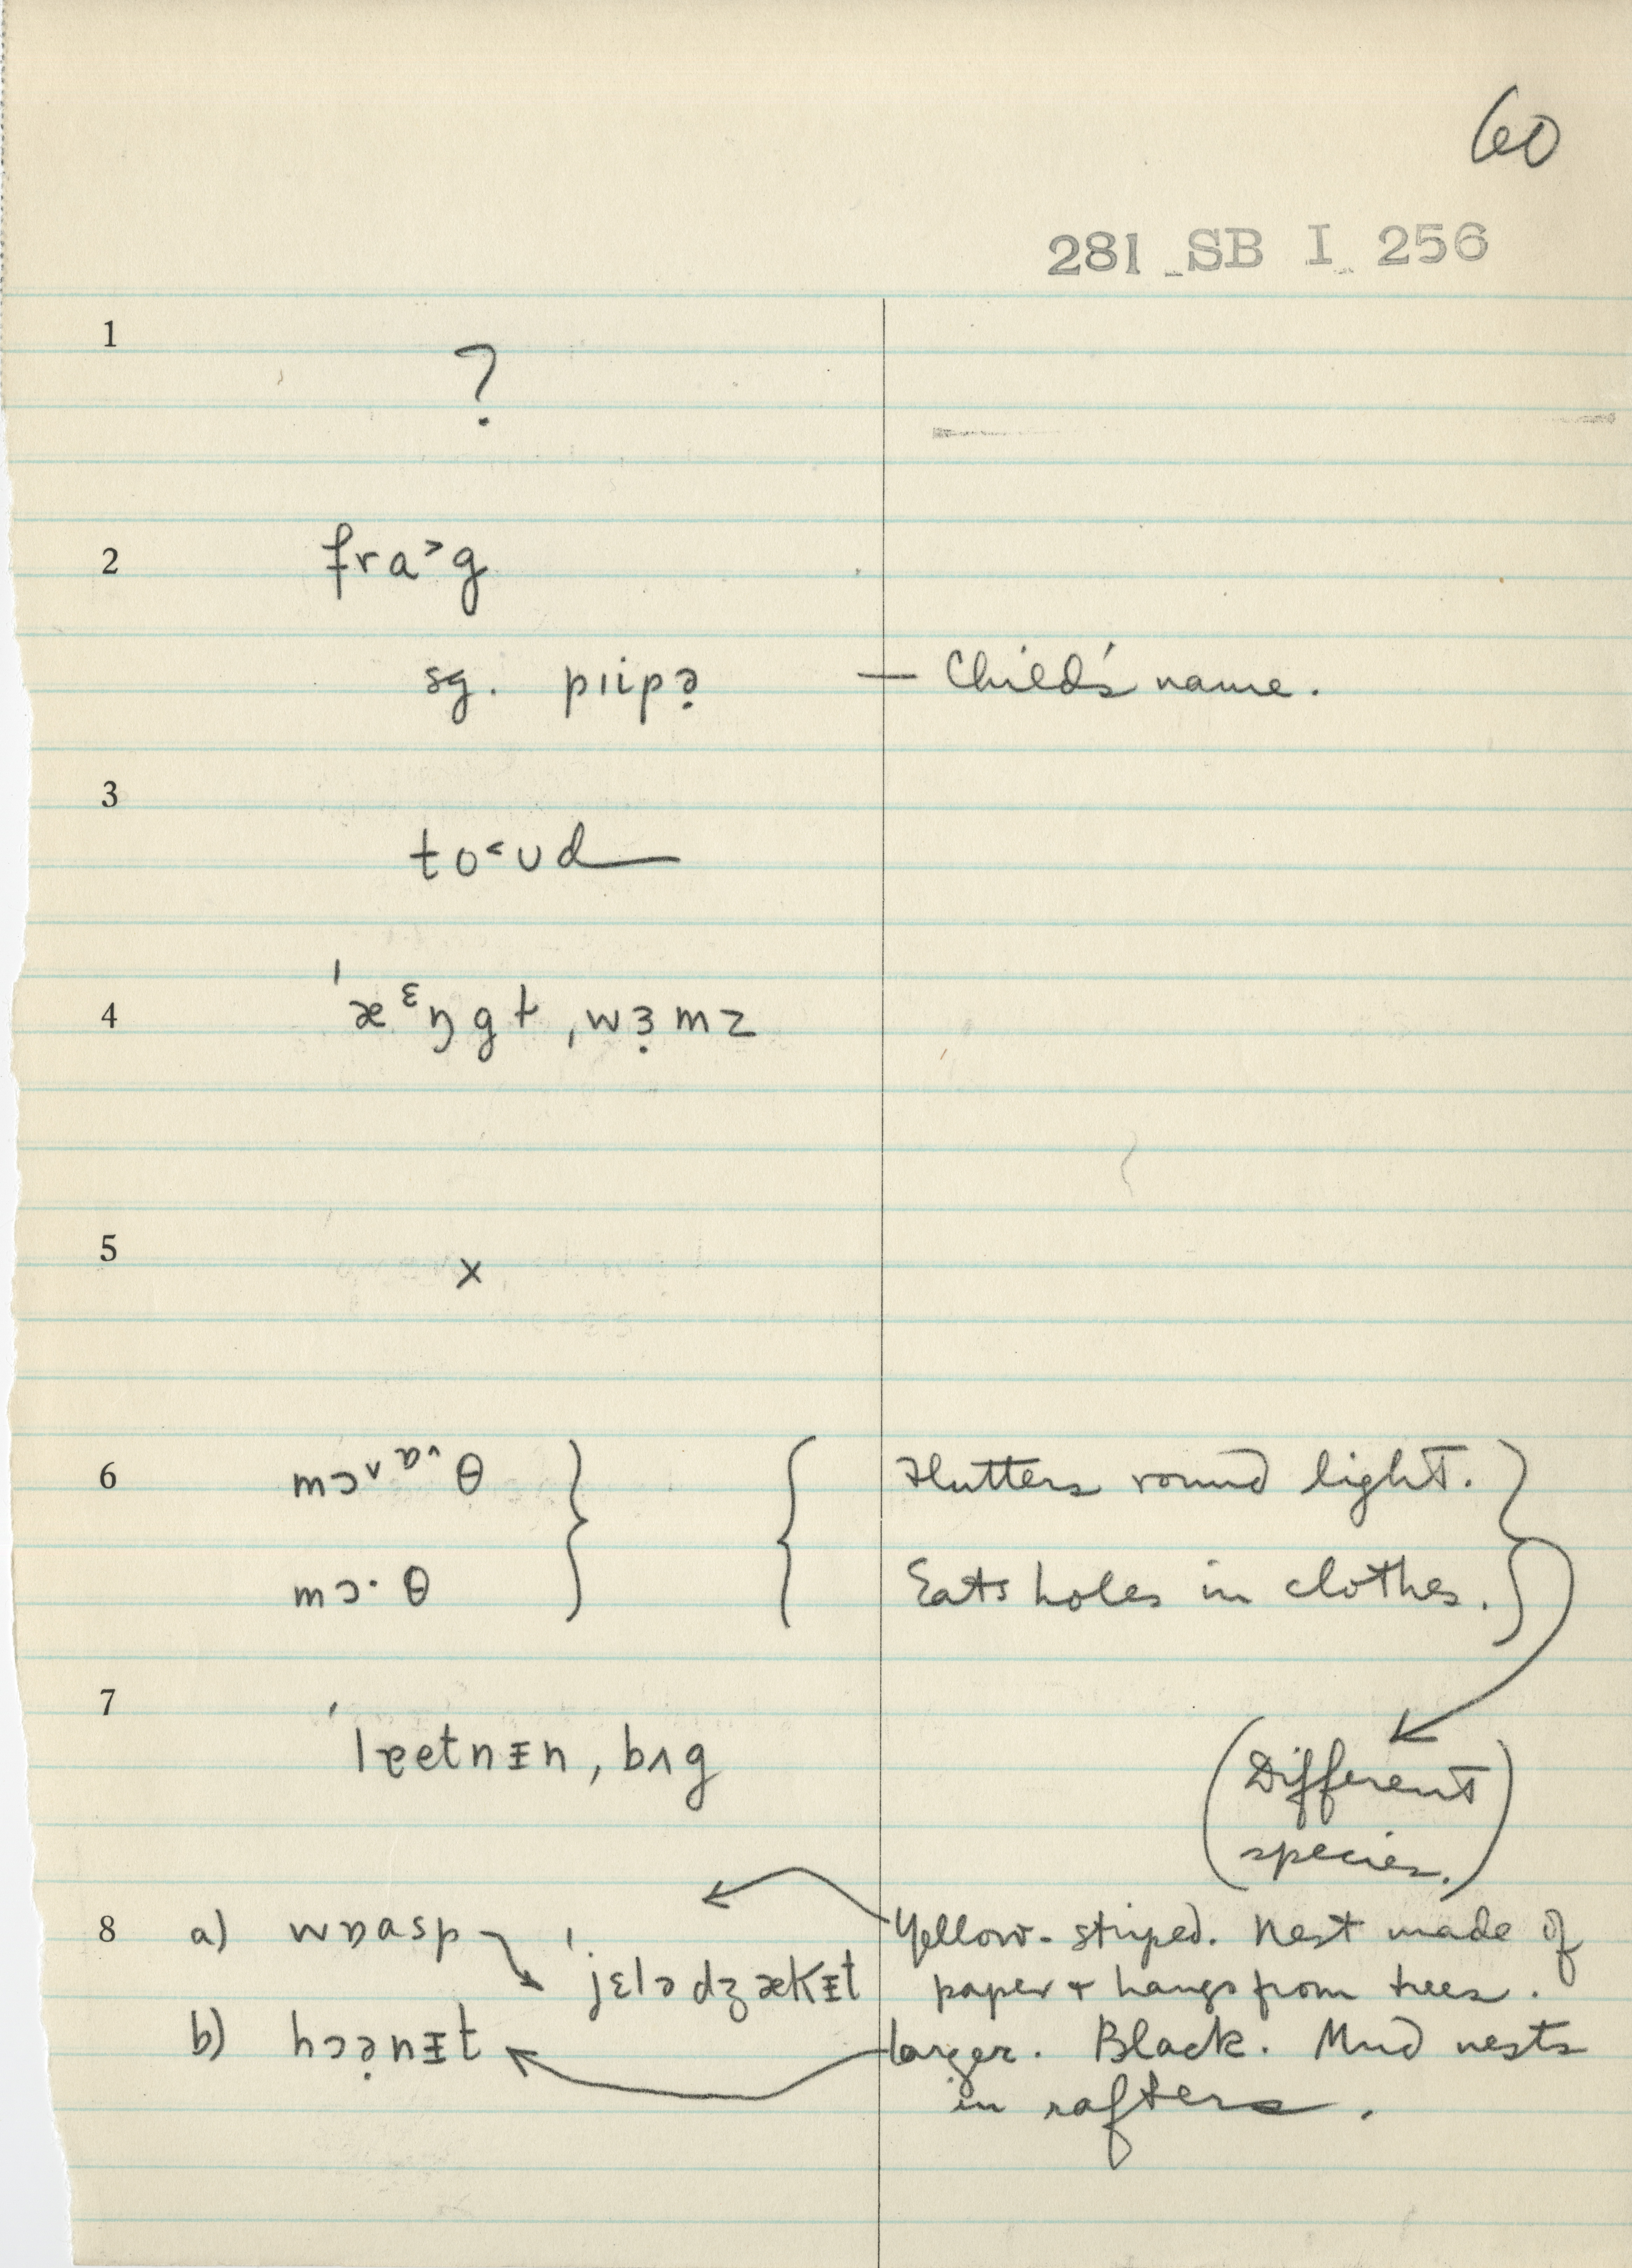 60
281 SB I 256
1 ?
2 fra˃g
sg. pɪipə̣ — Child's name.
3 to˂ʊd
4 ˈæᵋŋgɫ ˌwɜ̣mz
5 x
6 mɔ˅ɒ^θ } { Flutters round light. }
mɔ·θ Eats holes in clothes.
7 ˈlɐetnɪn ˌbʌg
(Different
species.)
8 a) wɒasp ˈjɛlədʒækɪt Yellow-striped. Nest made of
paper + hangs from trees.
b) hɔə̣nɪt Larger. Black. Mud nests
in rafters.